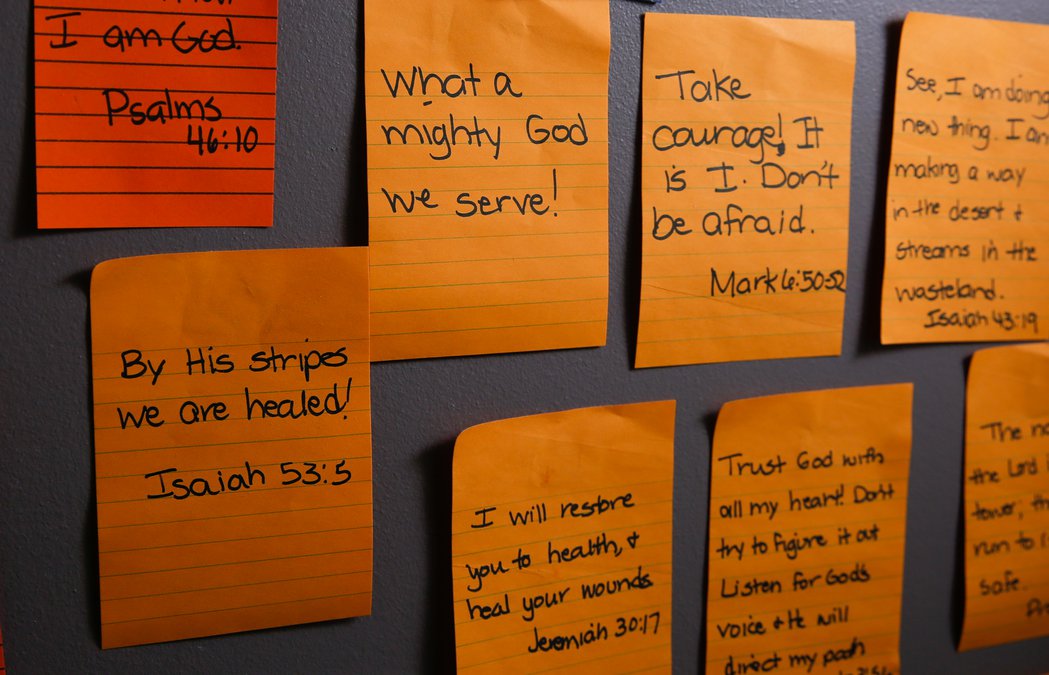 I am God.
Psalms
46:10
What a
mighty God
we serve!
Take
courage! It
is I. Don't
be afraid.
Mark 6:50-52
See, I am doing
new thing. I am
making a way
in the desert &
streams in the
wasteland.
Isaiah 43:19
By His stripes
we are healed!
Isaiah 53:5
I will restore
you to health, &
heal your wounds
Jeremiah 30:17
Trust God with
all my heart! Don't
try to figure it out
Listen for God's
voice & He will
direct my path
The
the Lord
tower; 
run to
safe.